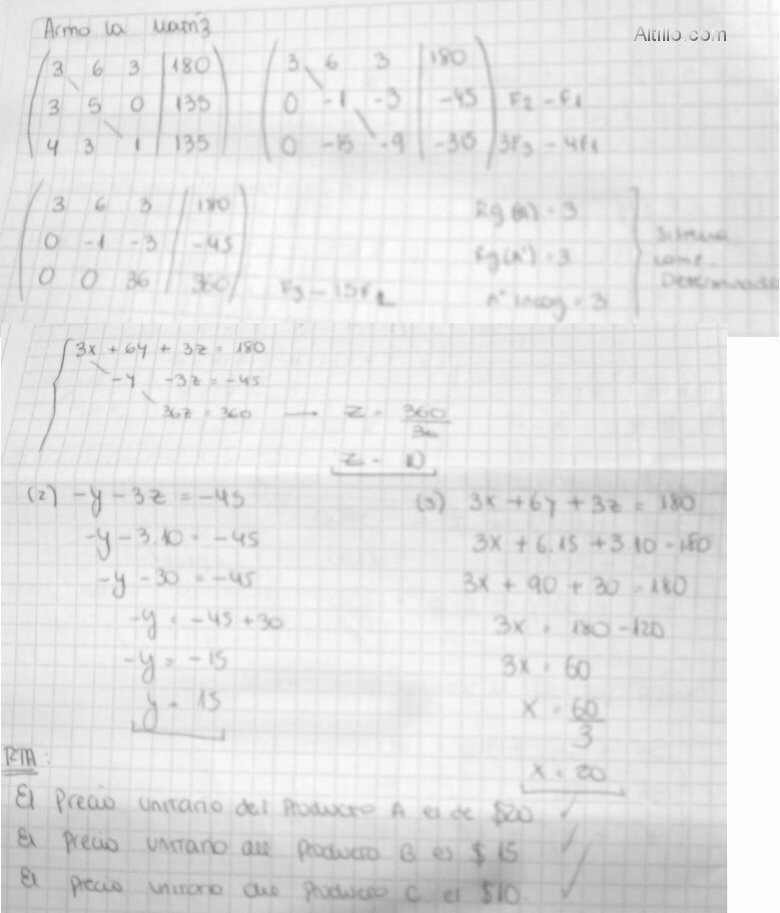 Armo la matriz
Altillo.com
3 6 3 | 180
3 5 0 | 135
4 3 1 | 135
3 6 3 | 180
0 -1 -3 | -45 F2 - F1
0 -15 -9 | 3F3 - 4F1
3 6 3 | 180
0 -1 -3 | -45
0 0 36 | 360 F3 - 15F2
Rg(A) = 3
Rg(A') = 3
n° incog = 3
Sistema
Determinado
3x + 6y + 3z = 180
-y -3z = -45
36z = 360 → z = 360/36
z = 10
(2) -y - 3z = -45
-y - 3.10 = -45
-y - 30 = -45
-y = -45 + 30
-y = -15
y = 15
3x + 6y + 3z = 180
3x + 6.15 + 3.10 = 180
3x + 90 + 30 = 180
3x = 180 - 120
3x = 60
x = 60/3
x = 20
RTA:
El precio unitario del producto A es de $20 ✓
El precio unitario del producto B es $15 ✓
El precio unitario del producto C es $10 ✓